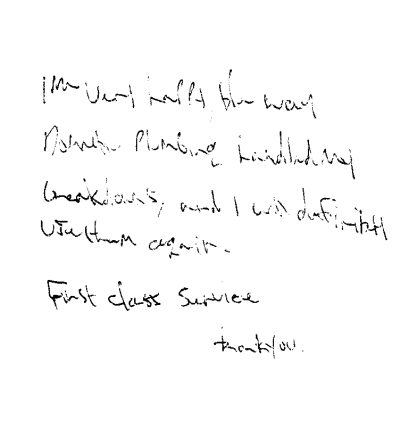 I'm very happy the way
Plumbing handled my
breakdown, and I will definitely
use them again.
First class service
thankyou.